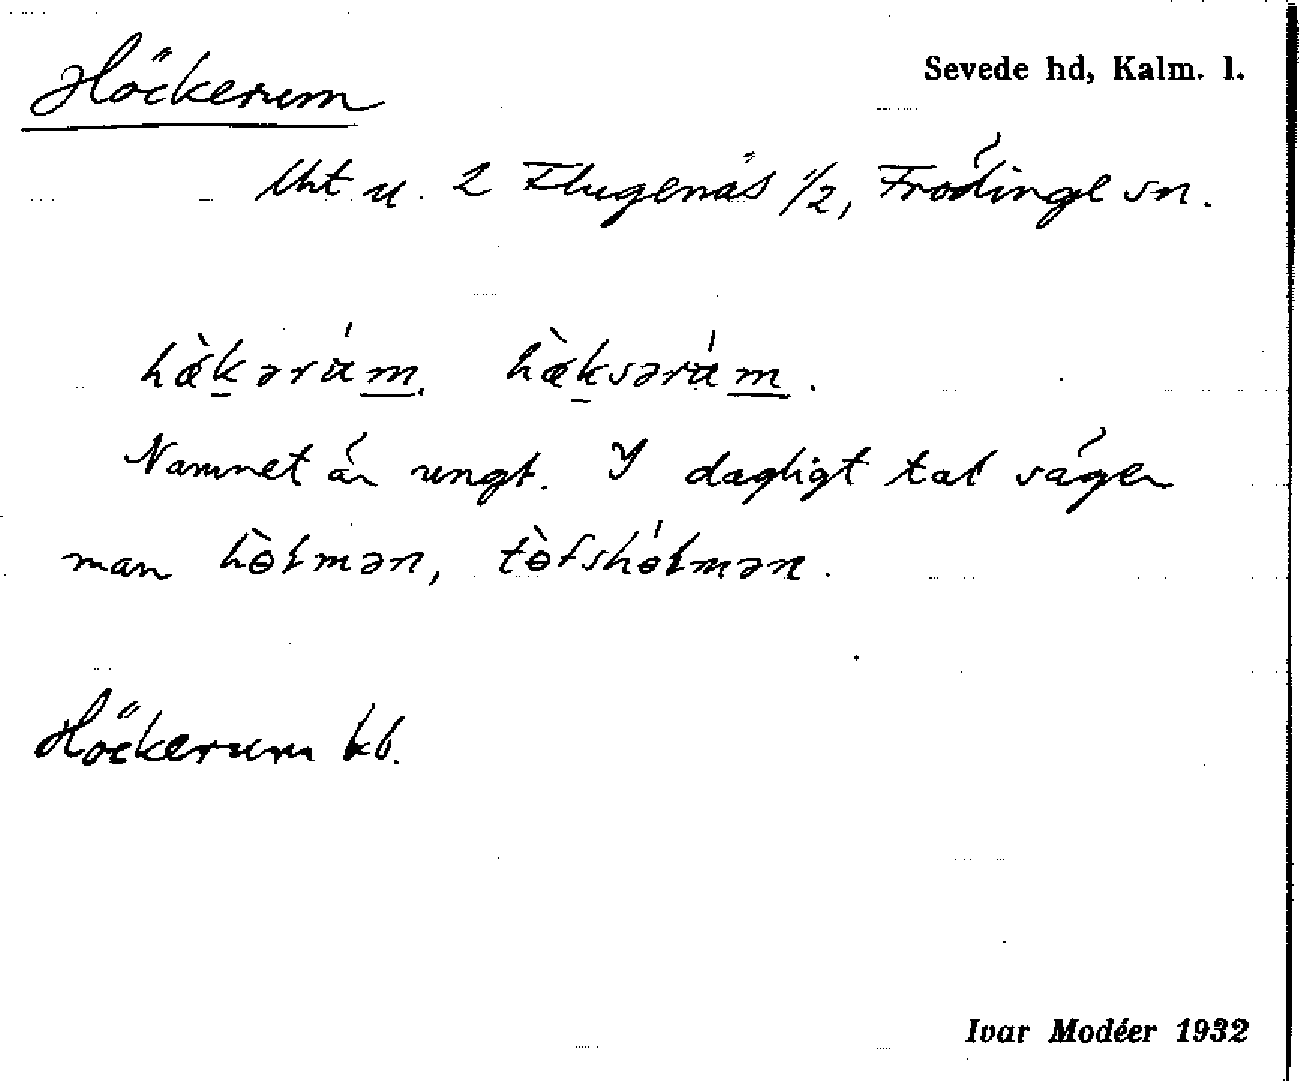 Höckerum
Sevede hd, Kalm. l.
lht u. 2 Flugenäs 1/2, Frödinge sn.
hæ̀kərúm. hæ̀ksərúm.
Namnet är ungt. I dagligt tal säger
man hòlmən, tòfshólmən.
Höckerum kb.
Ivar Modéer 1932